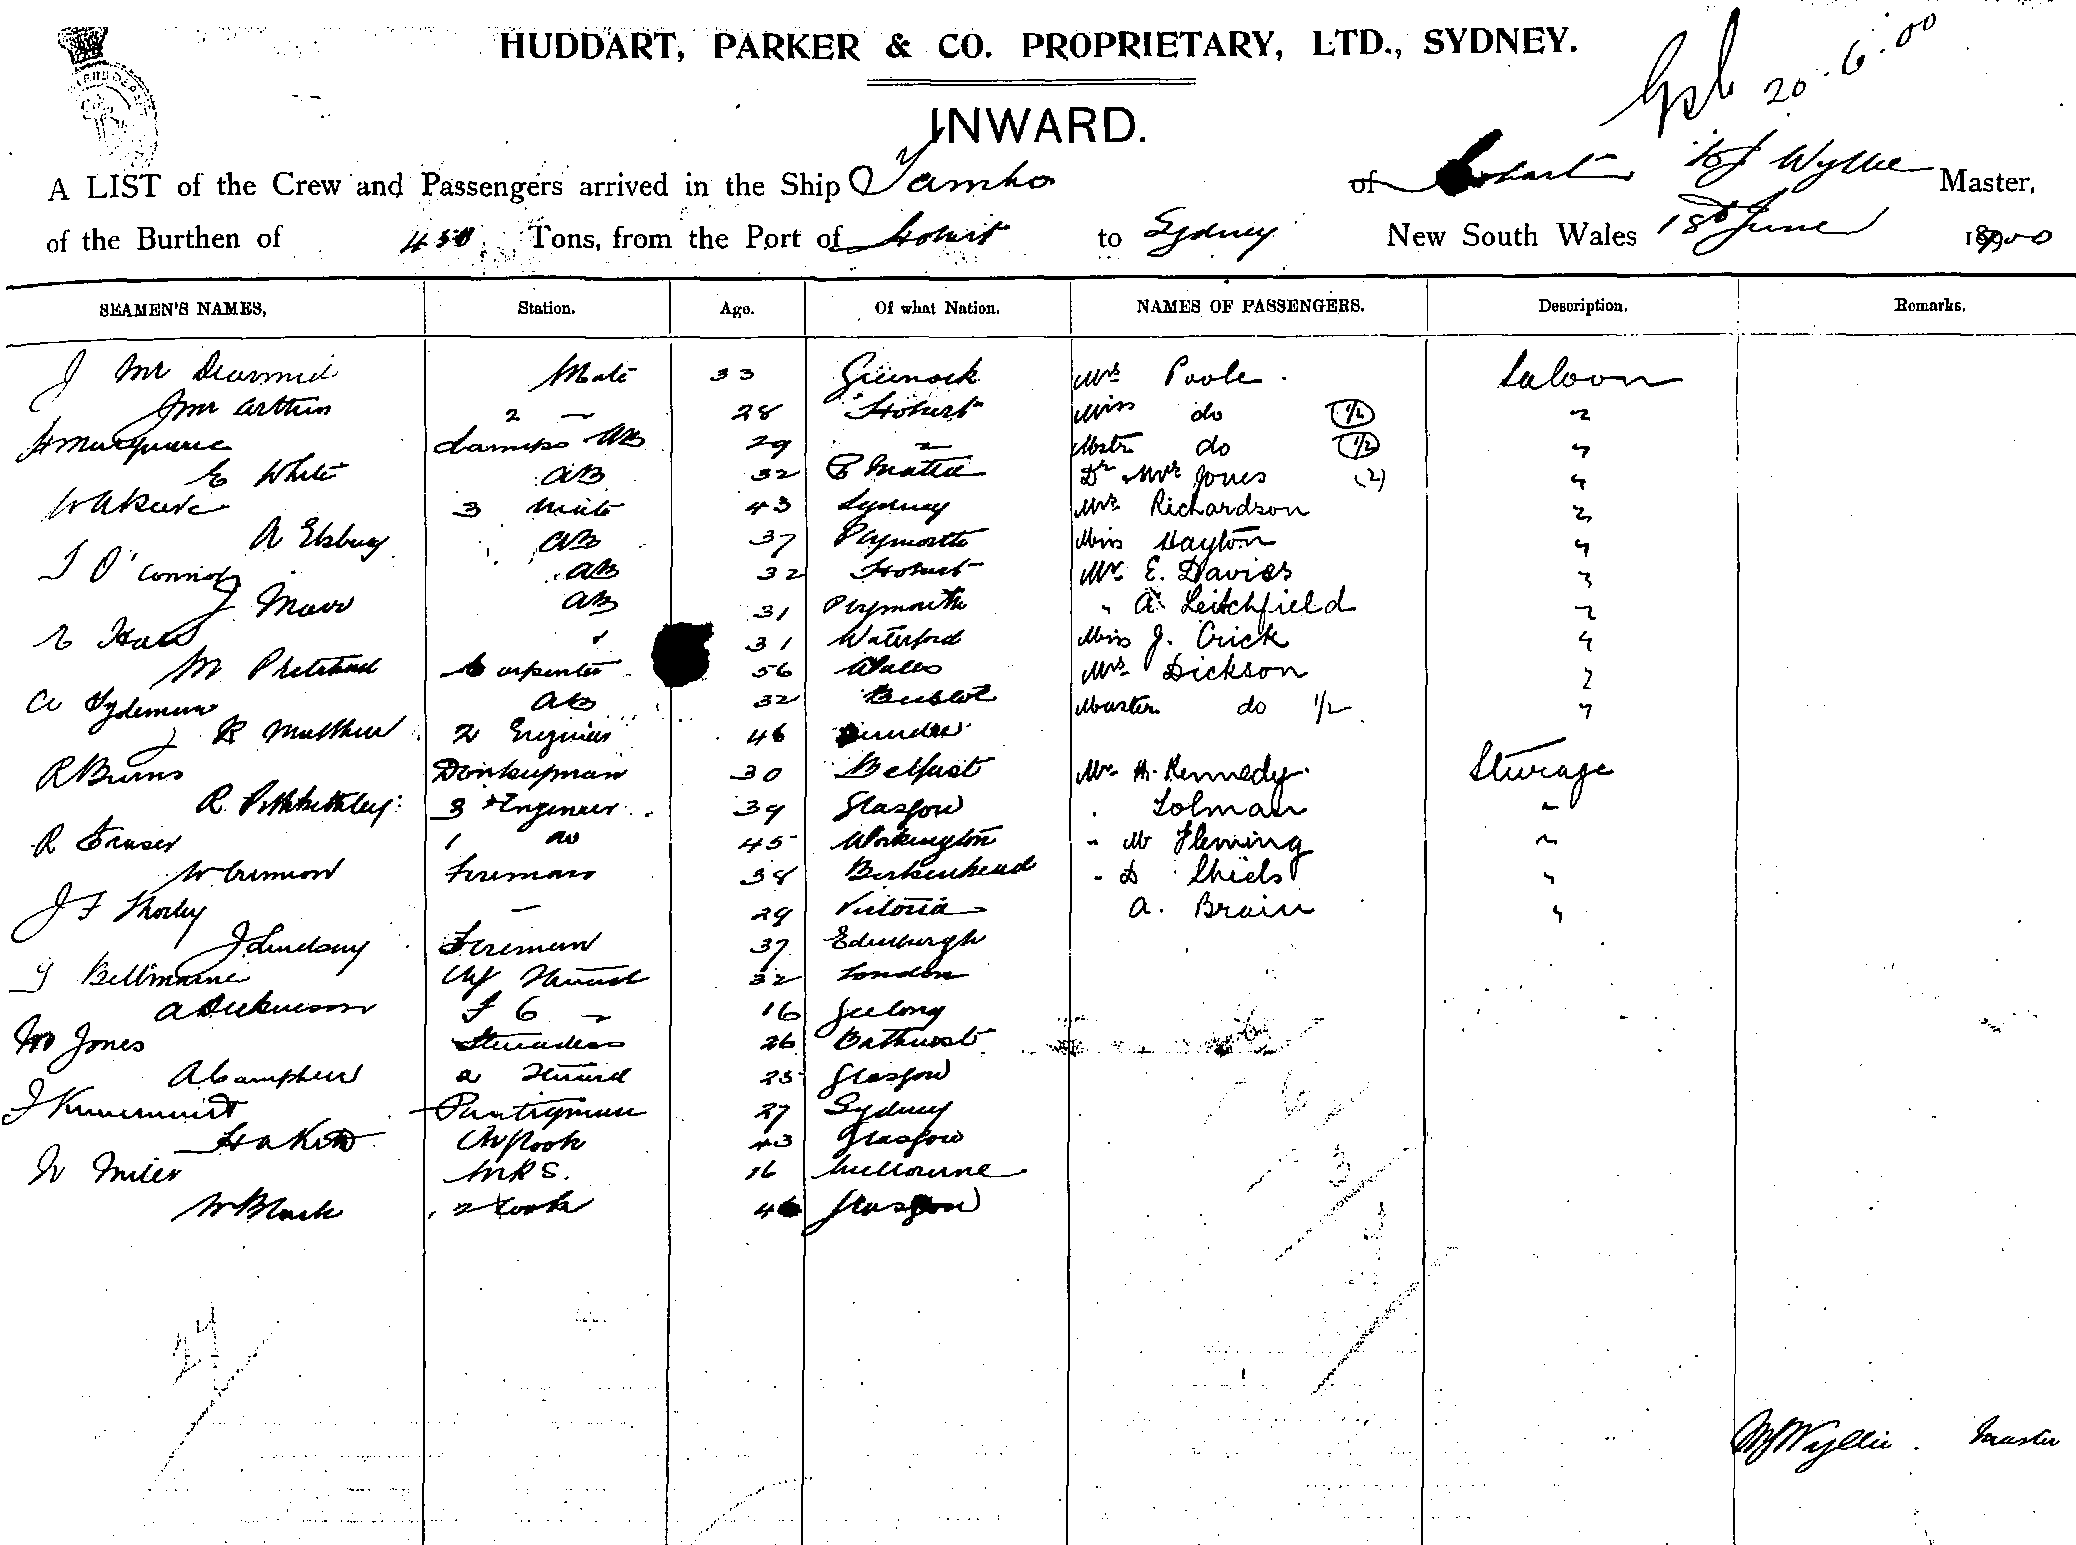 HUDDART, PARKER & CO. PROPRIETARY, LTD., SYDNEY.
20.6.00
INWARD.
A LIST of the Crew and Passengers arrived in the Ship Tambo of Hobart Wylie Master,
of the Burthen of 450 Tons, from the Port of Hobart to Sydney New South Wales 18th June 1900
SEAMEN'S NAMES, Station. Age. Of what Nation. NAMES OF PASSENGERS. Description. Remarks.
J Mc Dearmid Mate 33 Greenock Mrs Poole. Saloon
J Mc Arthur 2 " 28 Hobart Miss do (1/2) "
H Macquarie Lamps AB 29 " Mstr do (1/2) "
E White AB 32 P Matta Dr Mrs Jones (2) "
3 Mate 43 Sydney Mrs Richardson "
A Elsbury AB 37 Plymouth Miss Hayton "
T O'Connor AB 32 Hobart Mr. E. Davies "
J Marr AB 31 Plymouth " A Leitchfield "
E Hall " 31 Waterford Miss J. Crick "
M Carpenter 56 Wales Mrs Dickson "
A Sydeman AB 32 Bristol Master do 1/2 "
R Matthew 2 Engineer 46 Dundee
R Burns Donkeyman 30 Belfast Mr H. Kennedy. Steerage
R. Pitkethley 3 Engineer 39 Glasgow " Tolman "
R Fraser 1 do 45 Workington " M Fleming "
W Fireman 38 Birkenhead " D Shiels "
J F Thorley " 29 Victoria A. Brain "
J Lindsay Fireman 37 Edinburgh
T Bellmaine Chf Steward 32 London
A Dickinson F C " 16 Geelong
M Jones Stewardess 26 Bathurst
A Campbell 2 Steward 25 Glasgow
J Pantryman 27 Sydney
H A Keith Chf Cook 43 Glasgow
W Miles M R S. 16 Melbourne
W Black 2 Cook 46 Glasgow
Wyllie. Master